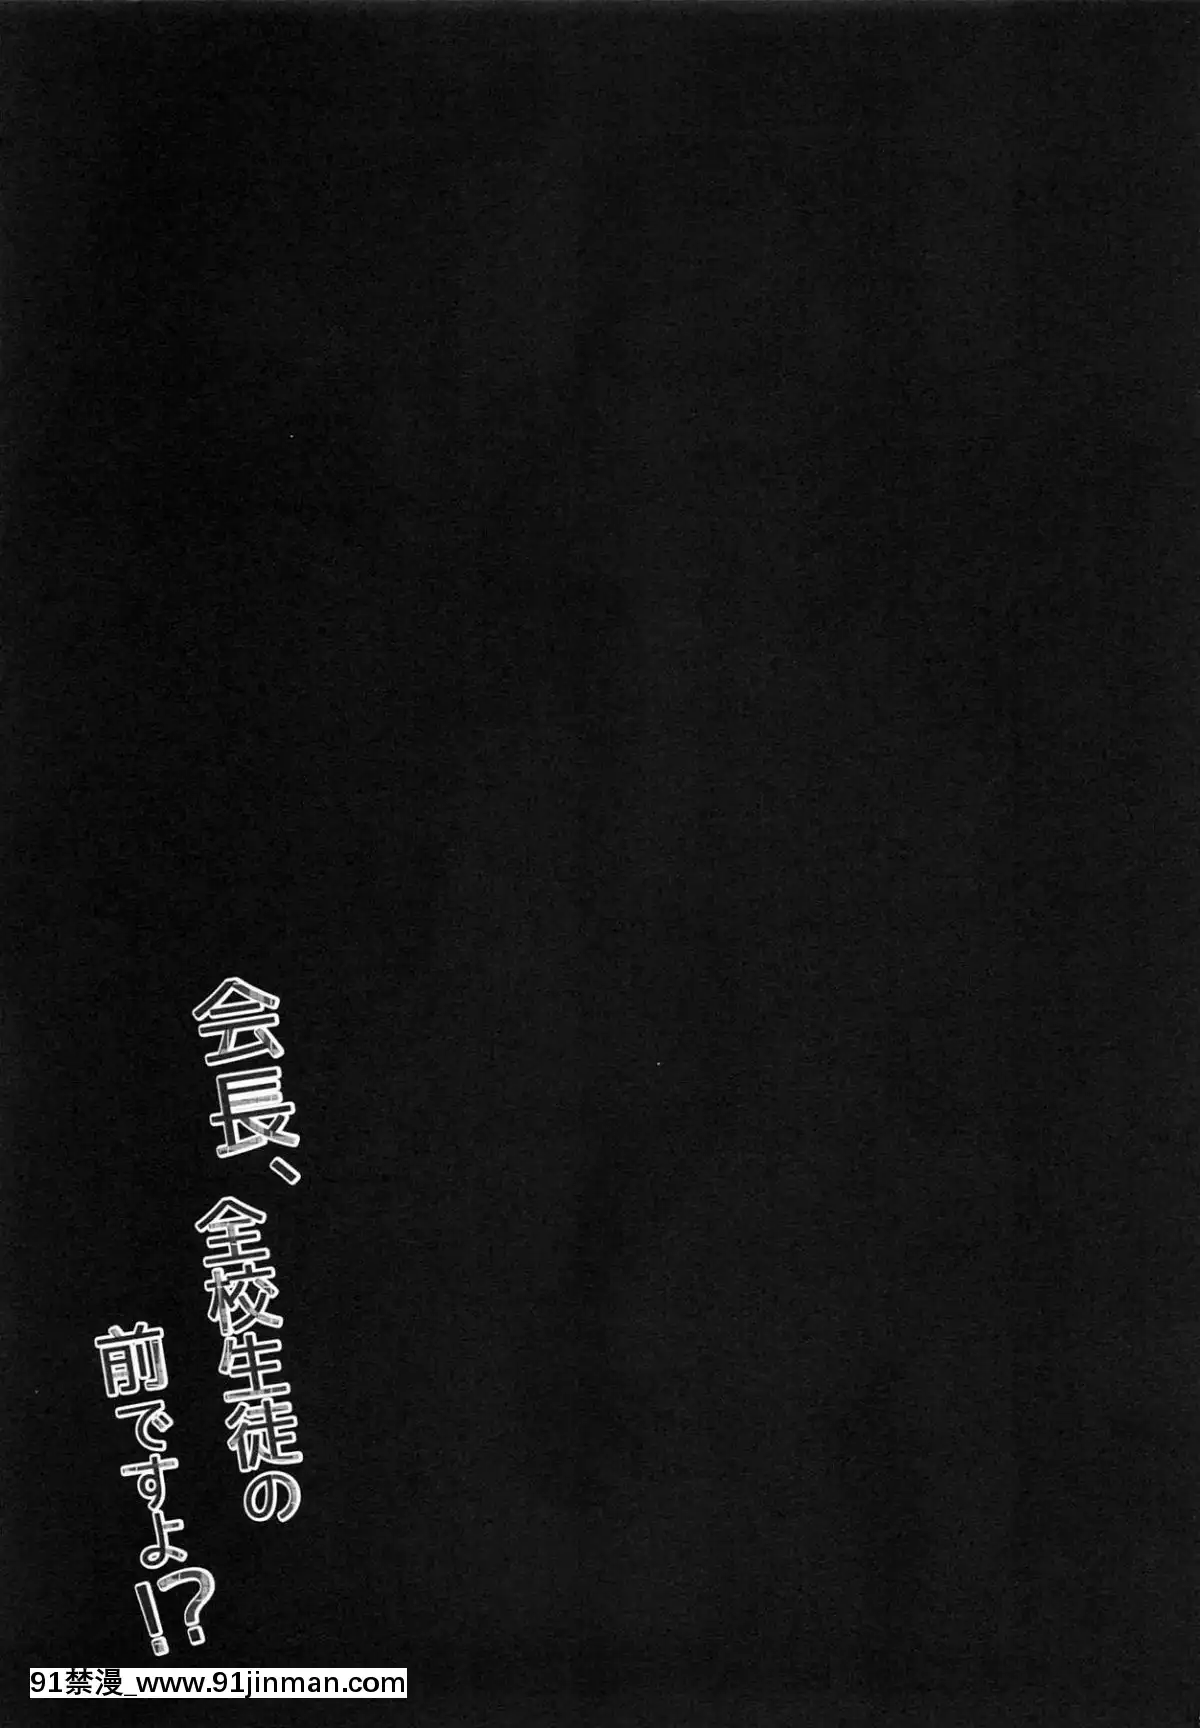 会長、全校生徒の
前ですよ!?
91禁漫_www.91jinman.com